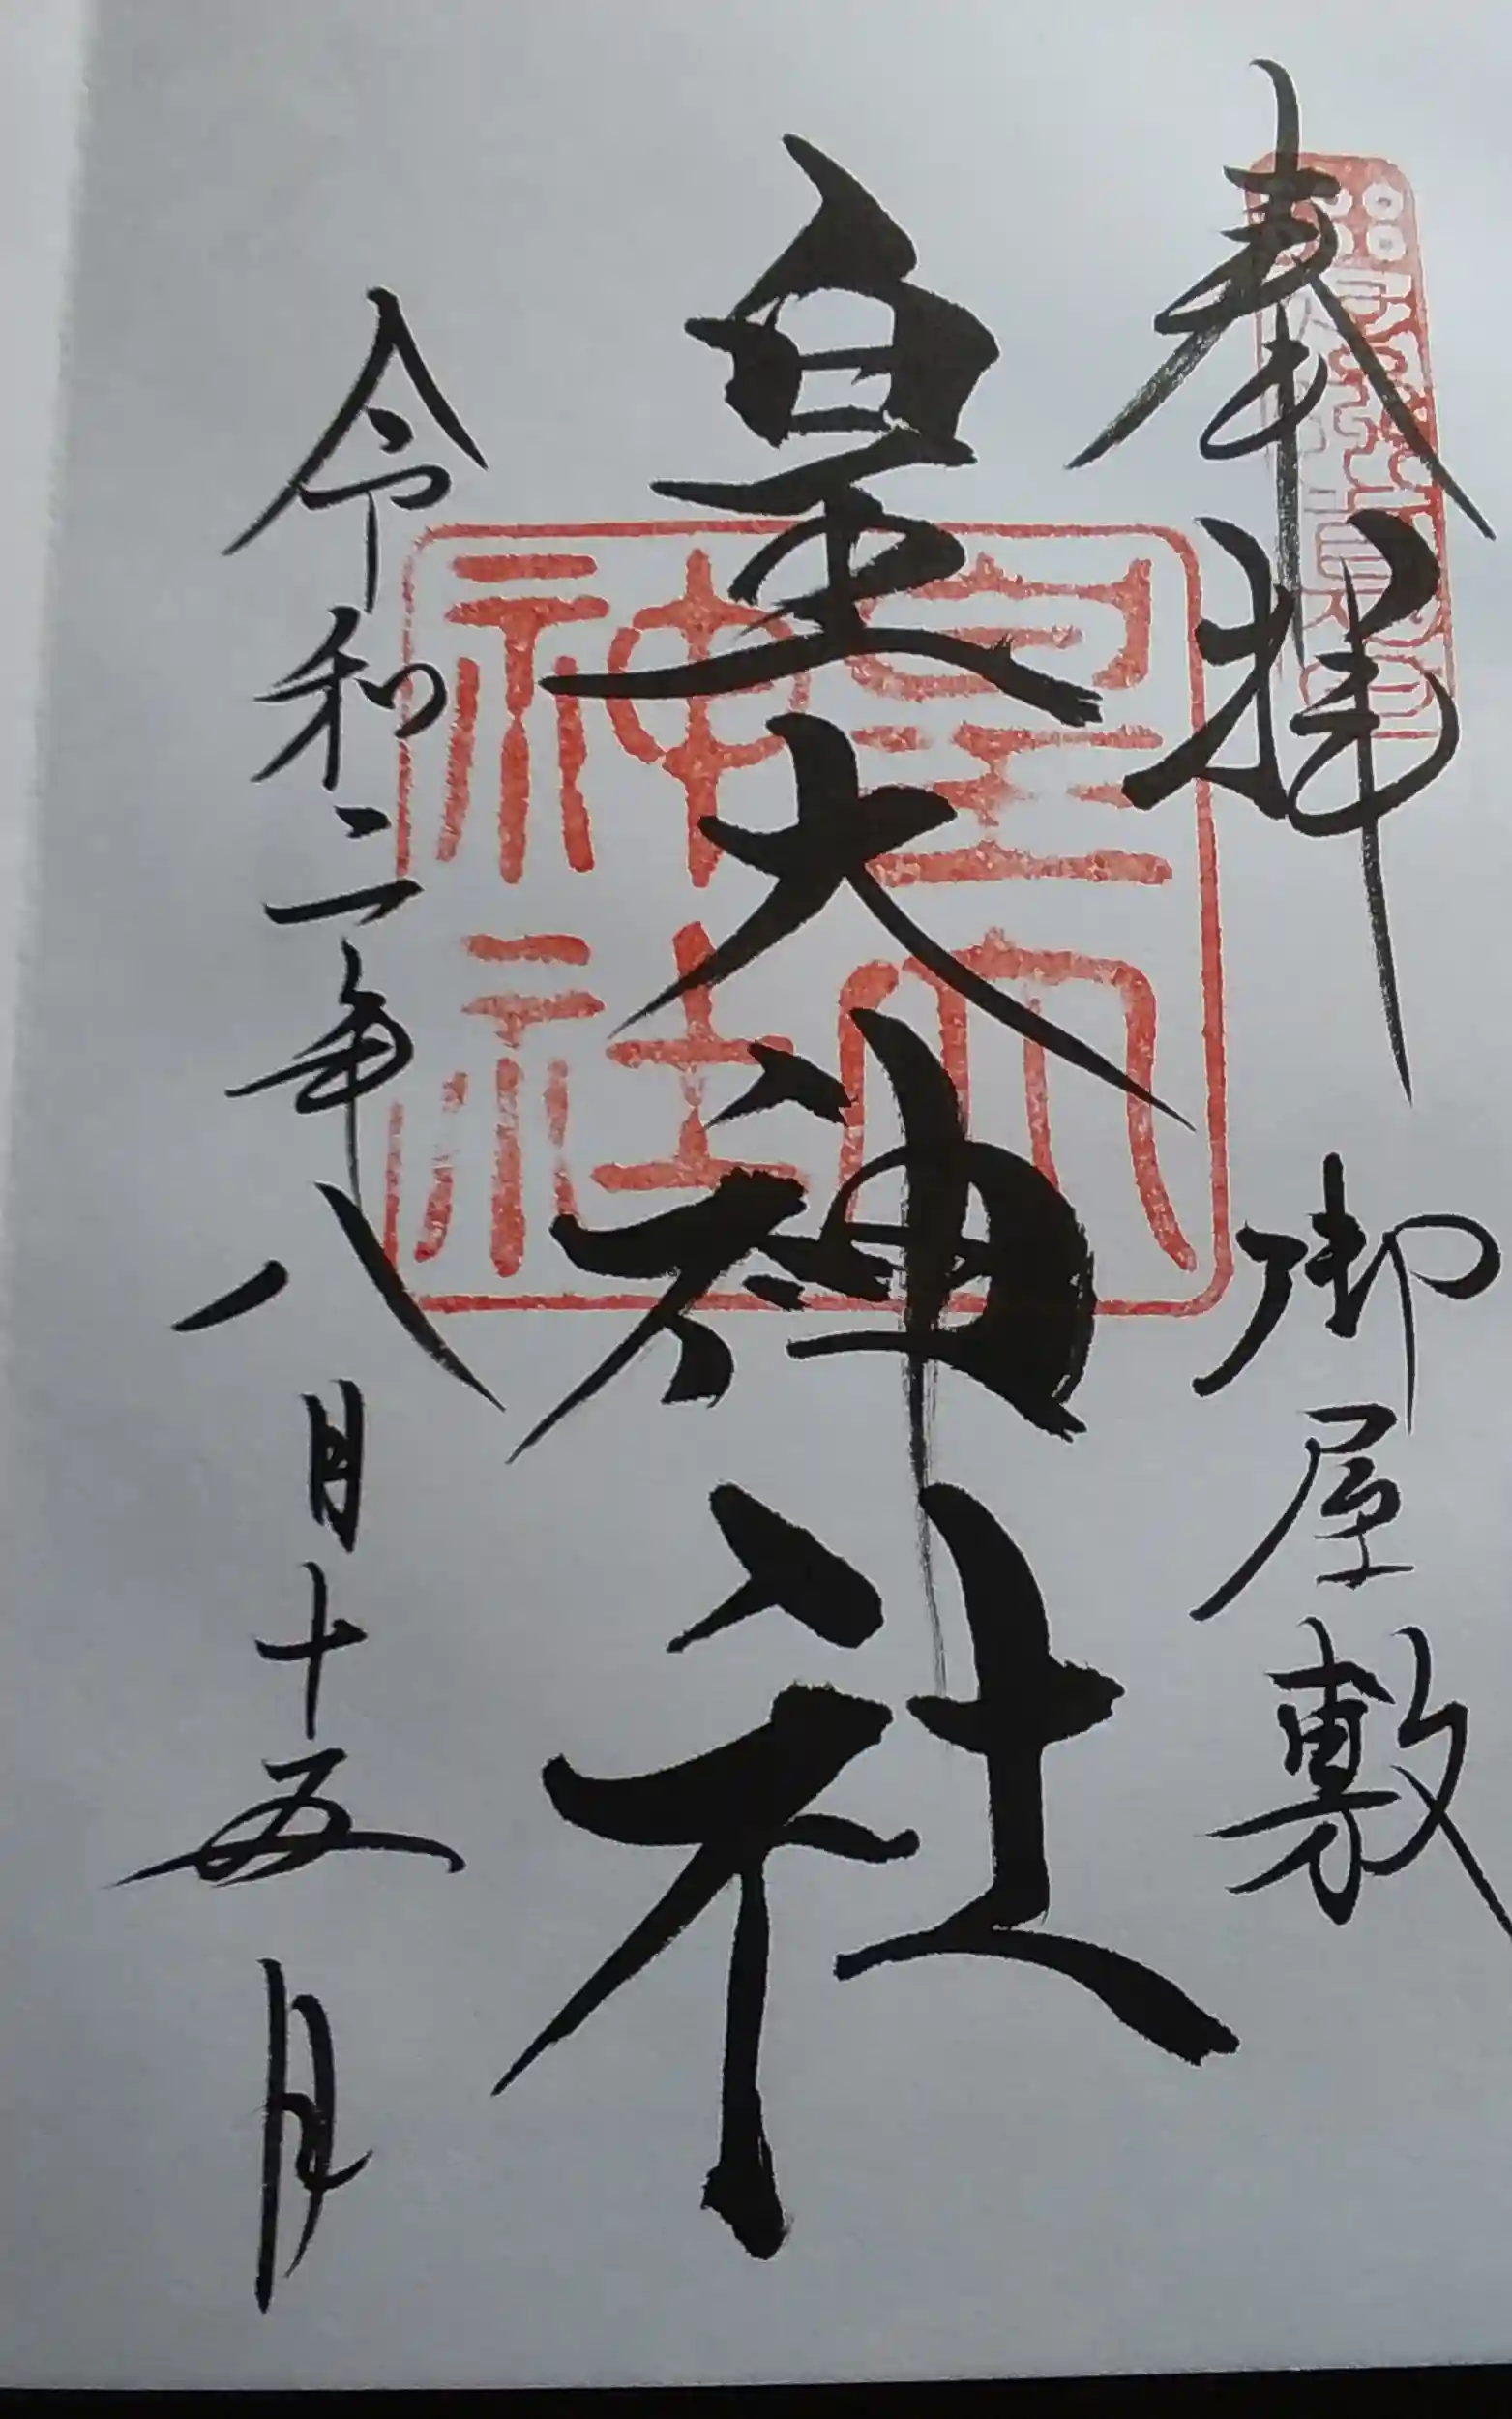 奉拝 御屋敷
皇大神社
皇大神社
令和二年八月十五日